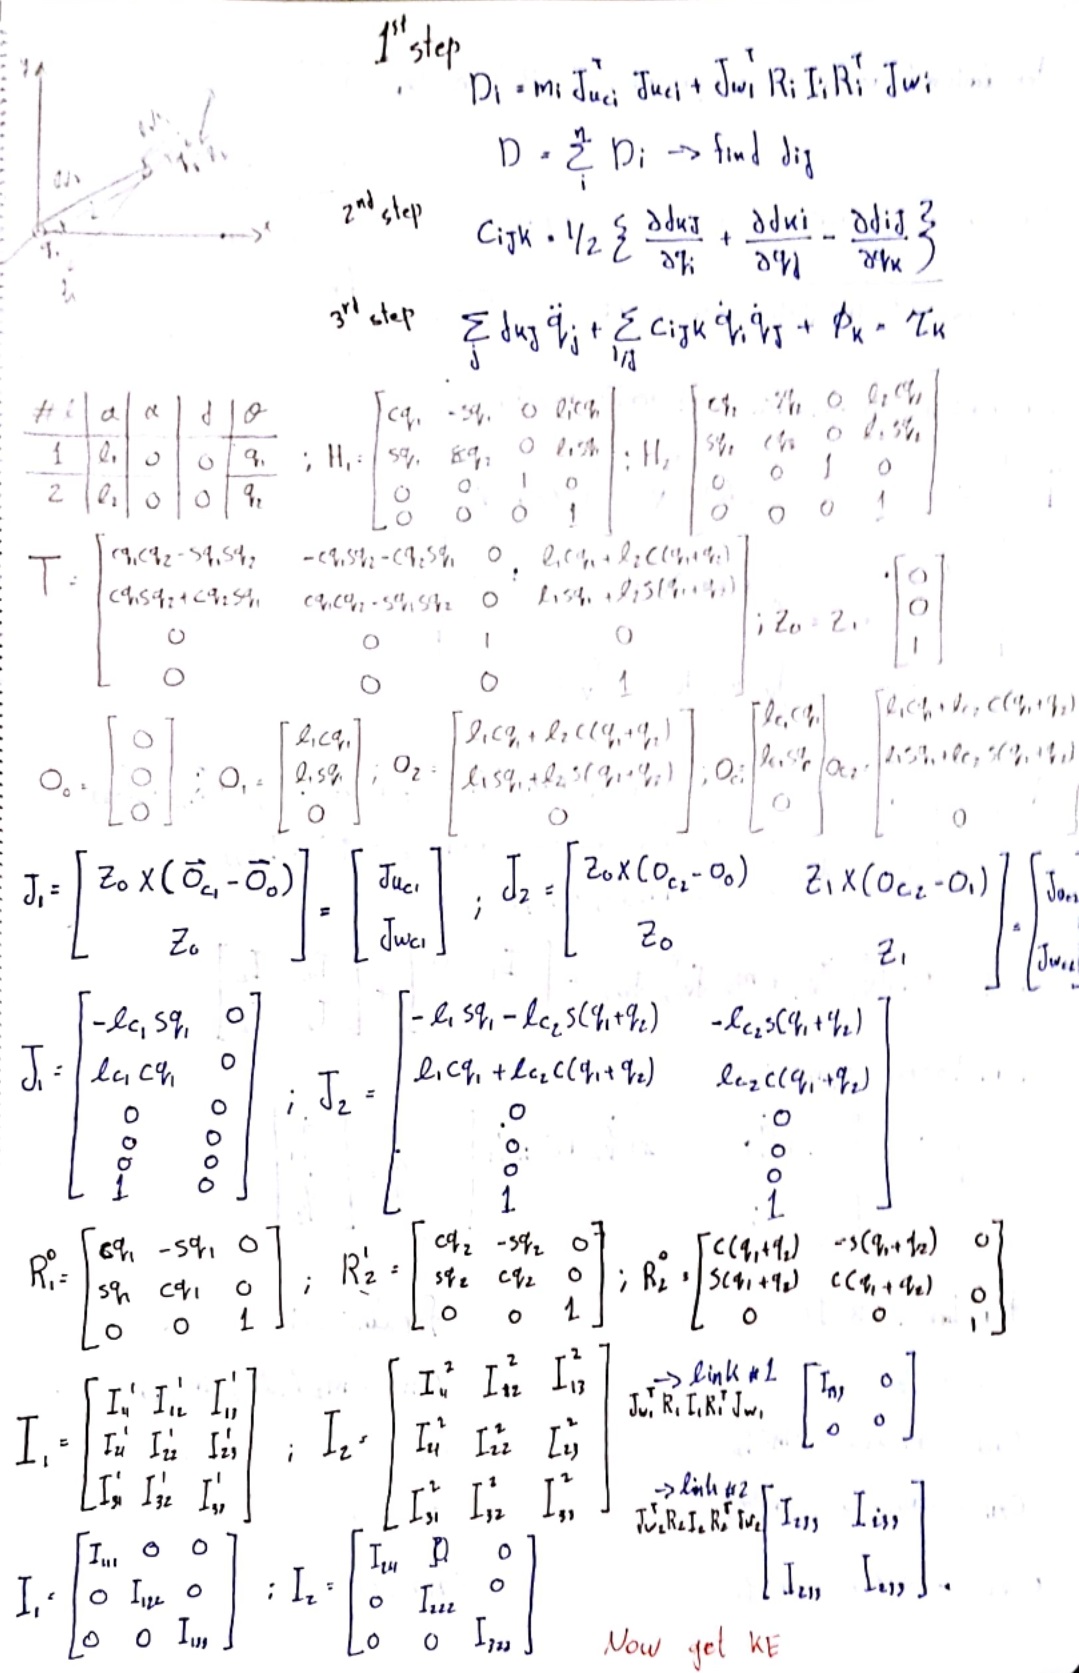 1st step
Di = mi Jvci^T Jvci + Jwi^T Ri Ii Ri^T Jwi
D = Σ_i^n Di → find dij
2nd step
Cijk = 1/2 { ∂dkj/∂qi + ∂dki/∂qj - ∂dij/∂qk }
3rd step
Σ_j dkj q̈j + Σ_i,j Cijk q̇i q̇j + ϕk = τk
# i | a | α | d | θ
1 | l1 | 0 | 0 | q1
2 | l2 | 0 | 0 | q2
; H1 = [cq1 -sq1 0 l1cq1
sq1 cq1 0 l1sq1
0 0 1 0
0 0 0 1]
T = [cq1cq2-sq1sq2 -cq1sq2-cq2sq1 0 l1cq1+l2c(q1+q2)
cq1sq2+cq2sq1 cq1cq2-sq1sq2 0 l1sq1+l2s(q1+q2)
0 0 1 0
0 0 0 1]
; Z0 = Z1 = [0
0
1]
O0 = [0
0
0]
; O1 = [l1cq1
l1sq1
0]
; O2 = [l1cq1+l2c(q1+q2)
l1sq1+l2s(q1+q2)
0]
; Oc1 = [lc1cq1
lc1sq1
0]
Oc2 = [l1cq1+lc2c(q1+q2)
l1sq1+lc2s(q1+q2)
0]
J1 = [Z0 X (O⃗c1 - O⃗0)
Z0]
= [Jvc1
Jwc1]
; J2 = [Z0 X (Oc2 - O0) Z1 X (Oc2 - O1)
Z0 Z1]
J1 = [-lc1 sq1 0
lc1 cq1 0
0 0
0 0
0 0
1 0]
; J2 = [-l1 sq1 - lc2 s(q1+q2) -lc2 s(q1+q2)
l1cq1 + lc2 c(q1+q2) lc2 c(q1+q2)
0 0
0 0
0 0
1 1]
R1^0 = [cq1 -sq1 0
sq1 cq1 0
0 0 1]
; R2^1 = [cq2 -sq2 0
sq2 cq2 0
0 0 1]
; R2^0 = [c(q1+q2) -s(q1+q2) 0
s(q1+q2) c(q1+q2) 0
0 0 1]
I1 =
; I2 =
→ link #1
Jw1^T R1 I1 R1^T Jw1
→ link #2
Jw2^T R2 I2 R2^T Jw2
I1 = [I111 0 0
0 I122 0
0 0 I133]
; I2 = [I211 0 0
0 I222 0
0 0 I233]
Now get KE